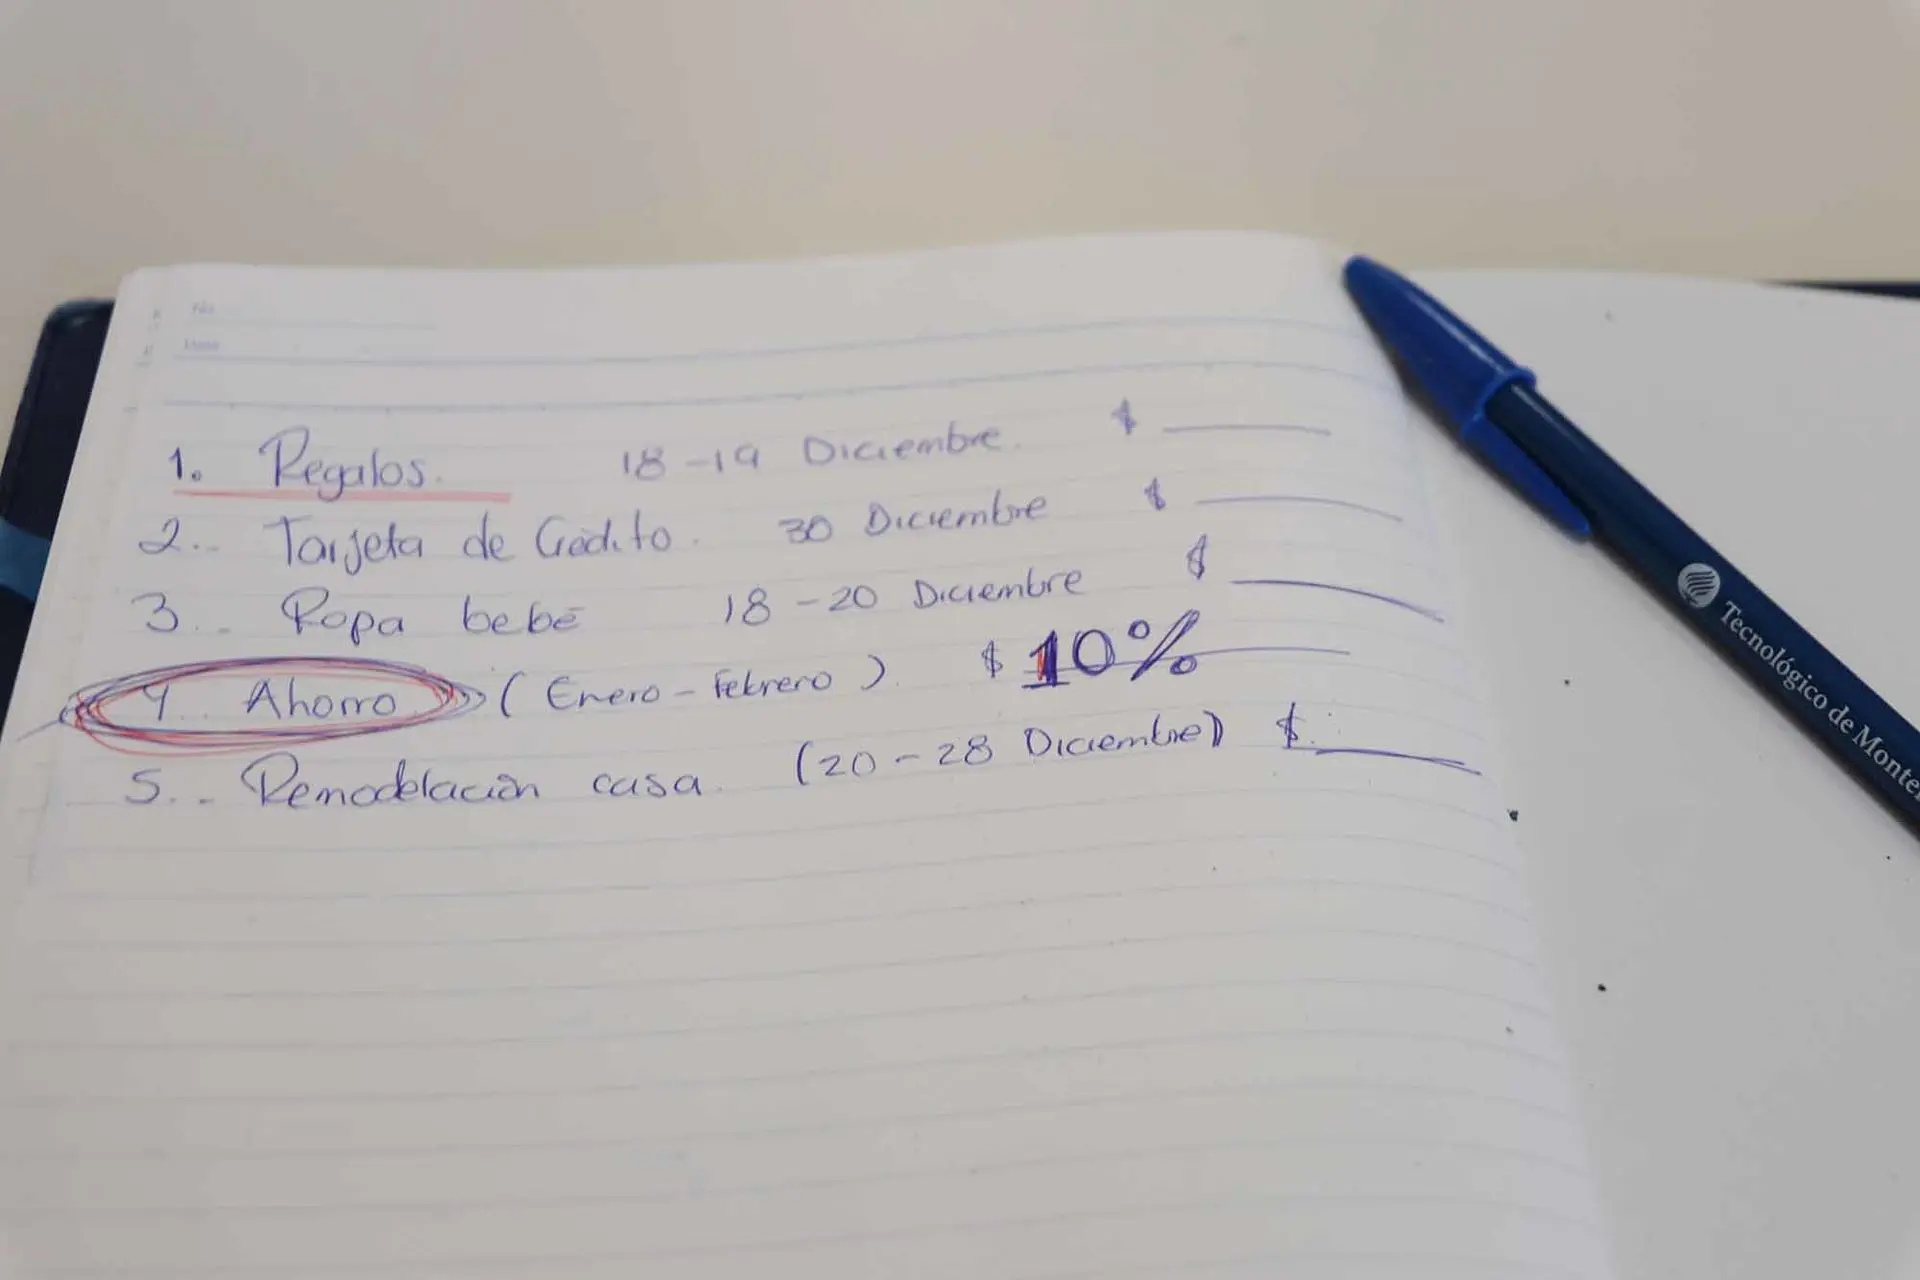 1. Regalos. 18-19 Diciembre. $ ____
2.- Tarjeta de Credito. 30 Diciembre $ ____
3.- Ropa bebé 18-20 Diciembre $ ____
4.. Ahorro (Enero-Febrero). $ 10%
5.- Remodelación casa. (20-28 Diciembre) $ ____
Tecnológico de Monte